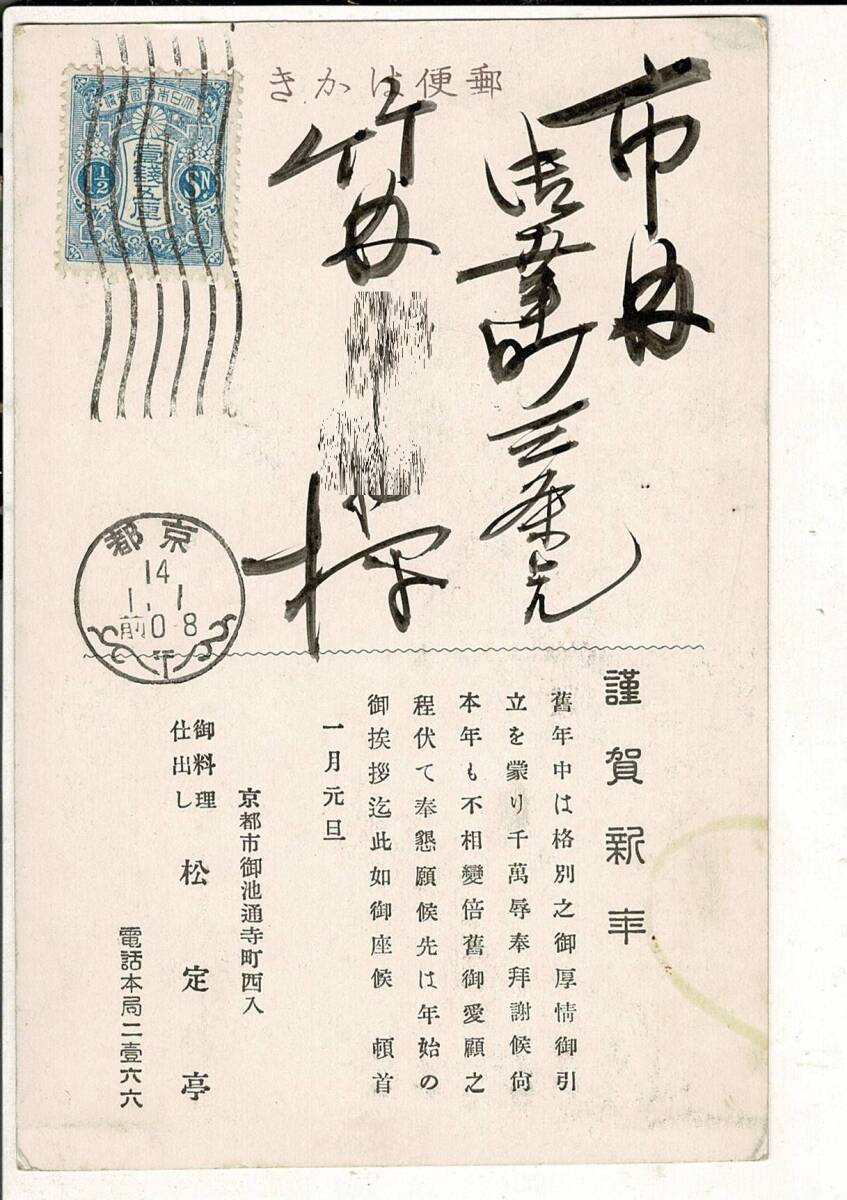 郵便はかき
大日本帝國郵便
壹錢五厘
1/2
SN
市内
三条
竹内
様
京都
14
1.1
前0-8
謹賀新年
舊年中は格別之御厚情御引
立を蒙り千萬辱奉拜謝候尙
本年も不相變倍舊御愛顧之
程伏て奉懇願候先は年始の
御挨拶迄此如御座候　頓首
一月元旦
京都市御池通寺町西入
御料理
仕出し
松定亭
電話本局二壹六六